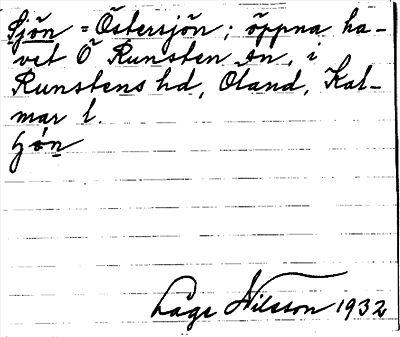 Sjön = Östersjön; öppna ha-
vet Ö Runsten sn, i
Runstens hd, Öland, Kal-
mar l.
Lage Nilsson 1932